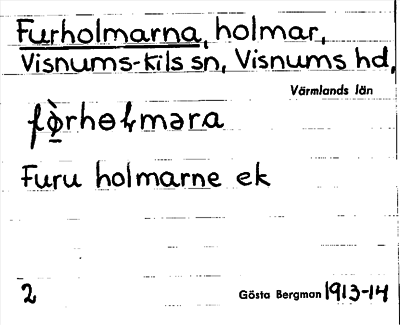 Furholmarna, holmar,
Visnums-Kils sn, Visnums hd,
Värmlands län
Furu holmarne ek
2 Gösta Bergman 1913-14